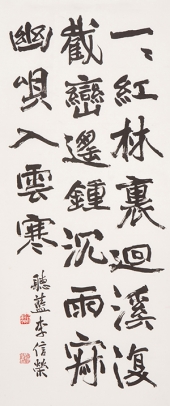 一〻紅林裏迴溪復
截巒遙鍾沉雨寂
幽唄入雲寒
聽藍李信榮